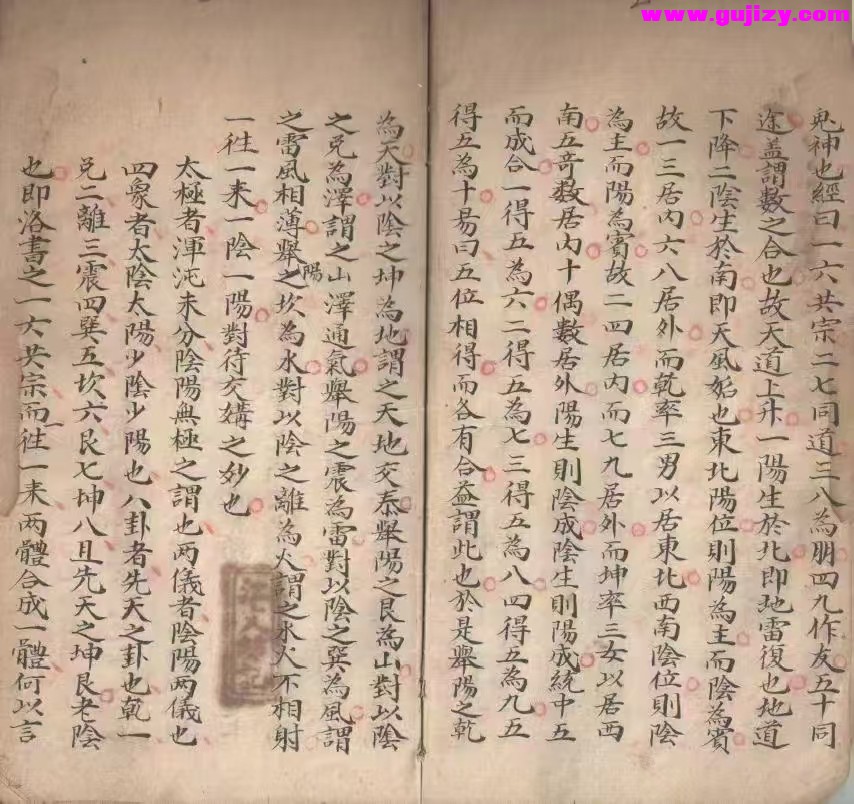 www.gujizy.com
鬼神也經曰一六共宗二七同道三八為朋四九作友五十同
途蓋謂數之合也故天道上升一陽生於北即地雷復也地道
下降二陰生於南即天風姤也東北陽位則陽為主而陰為賓
故一三居內六八居外而乾率三男以居東北西南陰位則陰
為主而陽為賓故二四居內而七九居外而坤率三女以居西
南五奇數居內十偶數居外陽生則陰成陰生則陽成統中五
而成合一得五為六二得五為七三得五為八四得五為九五
得五為十易曰五位相得而各有合益謂此也於是舉陽之乾
為天對以陰之坤為地謂之天地交泰舉陽之艮為山對以陰
之兌為澤謂之山澤通氣舉陽之震為雷對以陰之巽為風謂
之雷風相薄舉陽之坎為水對以陰之離為火謂之水火不相射
一徃一来一陰一陽對待交媾之妙也
太極者渾沌未分陰陽無極之謂也两儀者陰陽两儀也
四象者太陰太陽少陰少陽也八卦者先天之卦也乾一
兌二離三震四巽五坎六艮七坤八且先天之坤艮老陰
也即洛書之一六共宗而一徃一来两體合成一體何以言